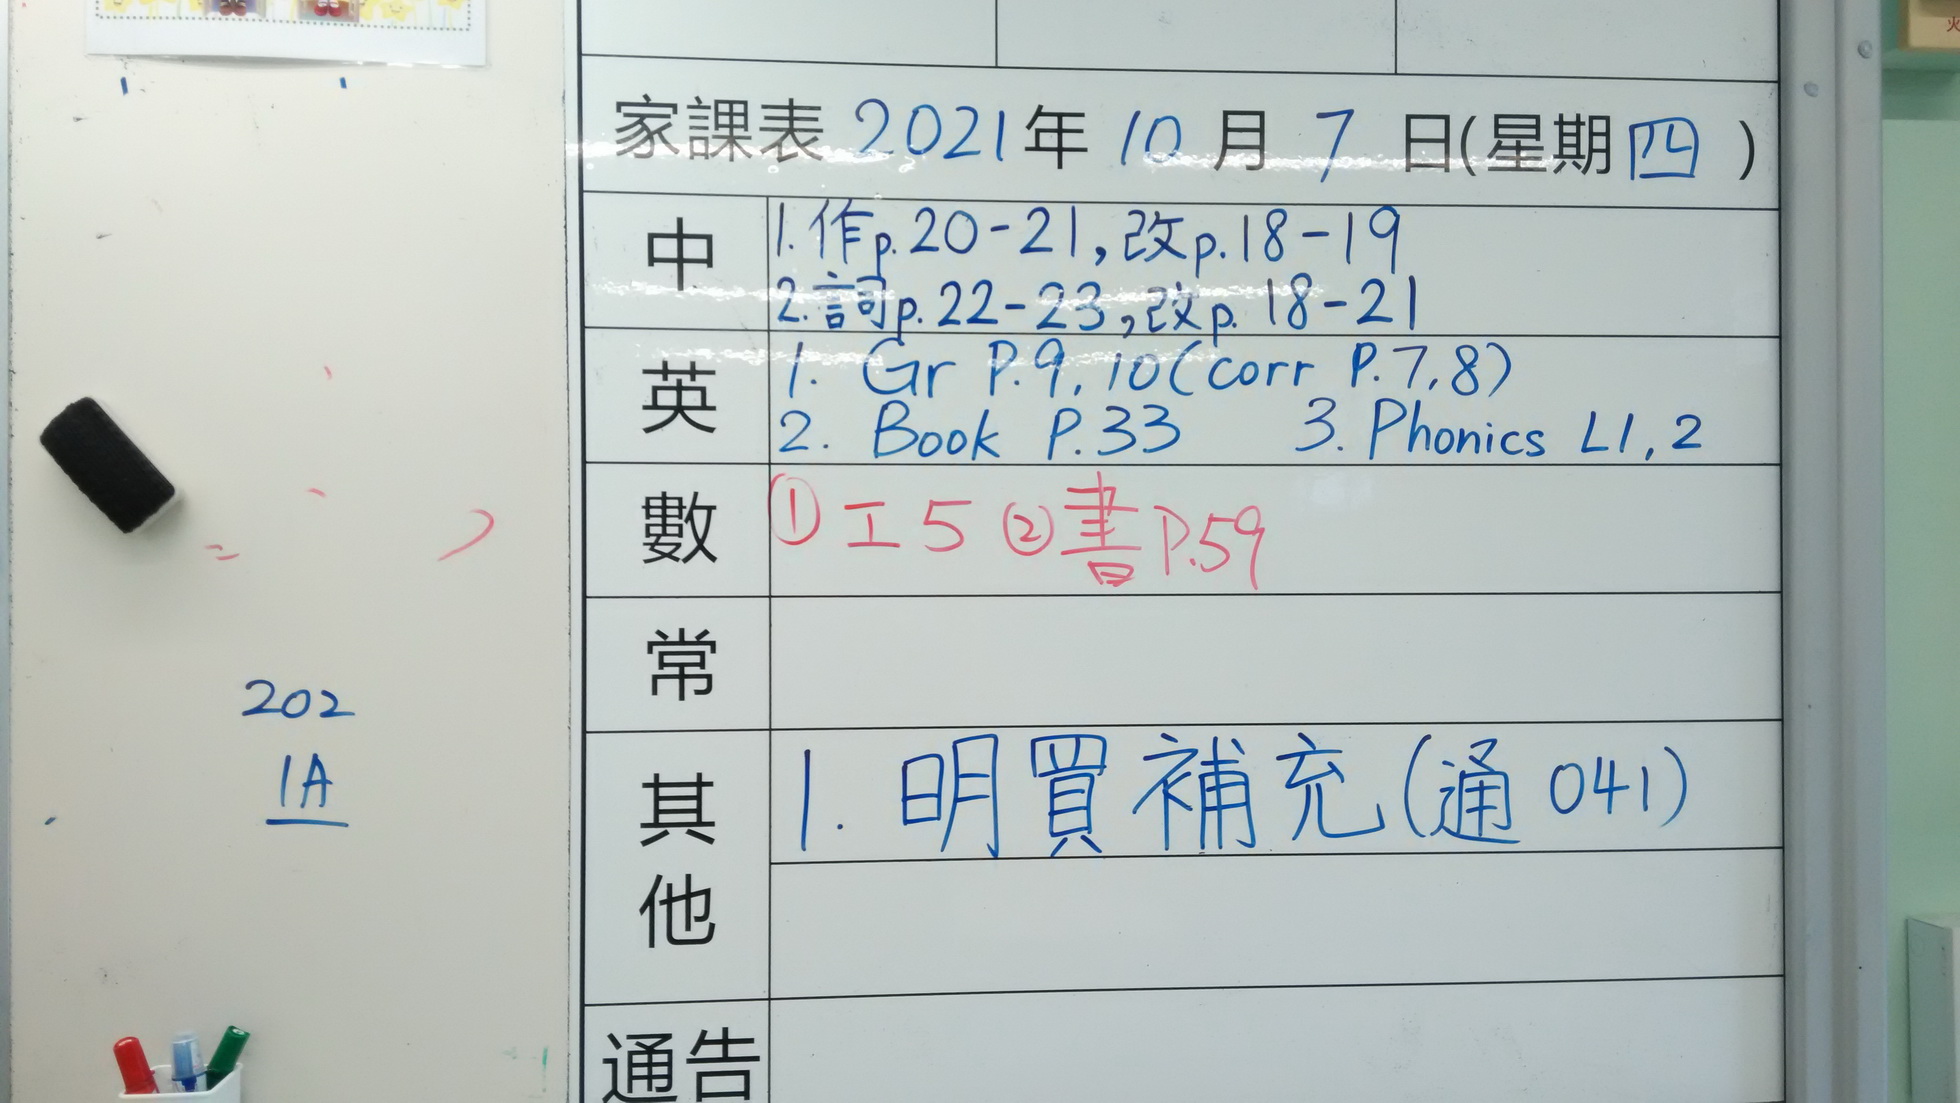 家課表 2021年 10月 7日(星期四)
中
1. 作p.20-21, 改p.18-19
2. 詞p.22-23, 改p.18-21
英
1. Gr P.9,10(corr P.7,8)
2. Book P.33 3. Phonics L1,2
數
① 工5 ② 書P.59
常
其他
1. 明買補充(通041)
通告
202
1A
火